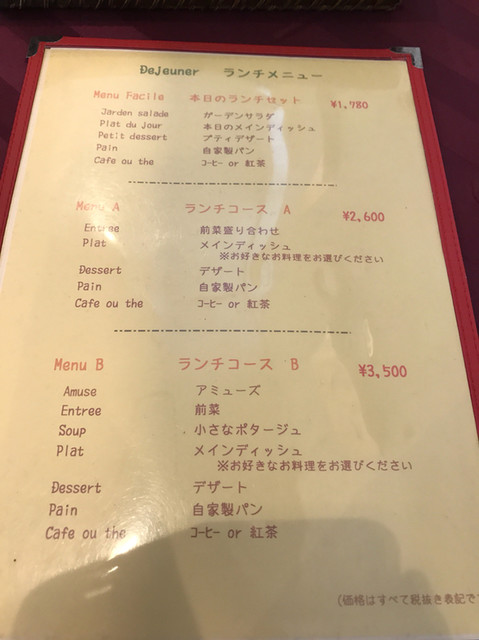 Dejeuner ランチメニュー
Menu Facile 本日のランチセット ¥1,780
Jarden salade ガーデンサラダ
Plat du jour 本日のメインディッシュ
Petit dessert プティデザート
Pain 自家製パン
Cafe ou the ｺｰﾋｰ or 紅茶
Menu A ランチコース A ¥2,600
Entree 前菜盛り合わせ
Plat メインディッシュ
※お好きなお料理をお選びください
Dessert デザート
Pain 自家製パン
Cafe ou the ｺｰﾋｰ or 紅茶
Menu B ランチコース B ¥3,500
Amuse アミューズ
Entree 前菜
Soup 小さなポタージュ
Plat メインディッシュ
※お好きなお料理をお選びください
Dessert デザート
Pain 自家製パン
Cafe ou the ｺｰﾋｰ or 紅茶
(価格はすべて税抜き表記で